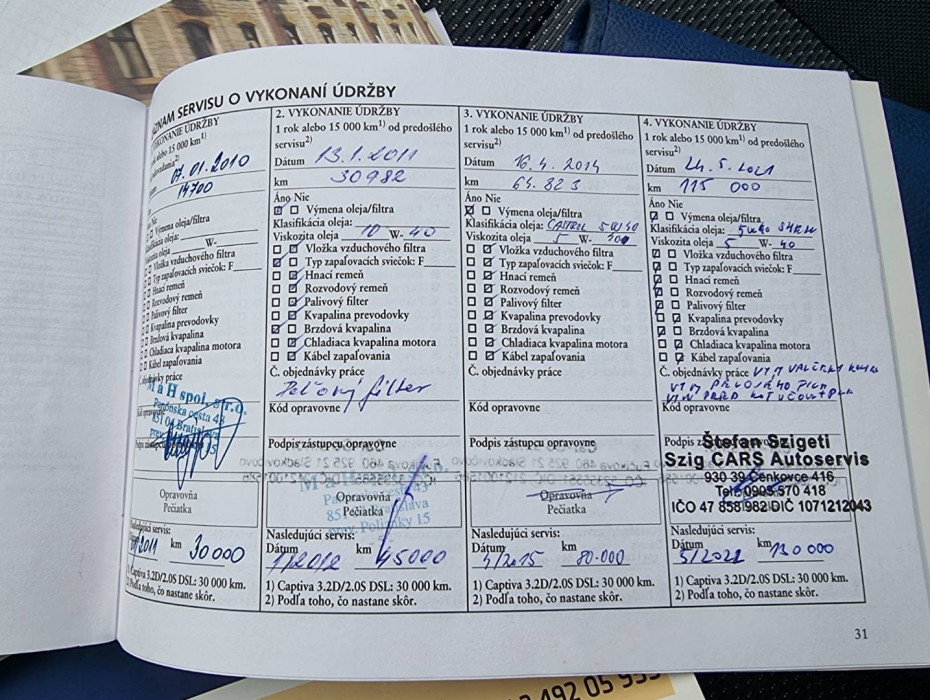 ZNAM SERVISU O VYKONANÍ ÚDRŽBY
VYKONANIE ÚDRŽBY
rok alebo 15 000 km1)
07.01.2010
14700
Nie
Výmena oleja/filtra
Klasifikácia oleja:
W-
Vložka vzduchového filtra
Typ zapaľovacích sviečok: F
Hnací remeň
Rozvodový remeň
Palivový filter
Kvapalina prevodovky
Brzdová kvapalina
Chladiaca kvapalina motora
Kábel zapaľovania
Č. objednávky práce
M a H spol. s r.o.
Panónska cesta 43
851 04 Bratislava
Kód opravovne
Opravovňa
Pečiatka
Nasledujúci servis:
2011 km 30 000
1) Captiva 3.2D/2.0S DSL: 30 000 km.
2) Podľa toho, čo nastane skôr.
2. VYKONANIE ÚDRŽBY
1 rok alebo 15 000 km1) od predošlého
servisu2)
Dátum 13.1.2011
km 30982
Áno Nie
Výmena oleja/filtra
Klasifikácia oleja:
Viskozita oleja 10 W- 40
Vložka vzduchového filtra
Typ zapaľovacích sviečok: F
Hnací remeň
Rozvodový remeň
Palivový filter
Kvapalina prevodovky
Brzdová kvapalina
Chladiaca kvapalina motora
Kábel zapaľovania
Č. objednávky práce
Peľový filter
Kód opravovne
Podpis zástupcu opravovne
Opravovňa
Pečiatka
Nasledujúci servis:
Dátum 1/2012 km 45000
1) Captiva 3.2D/2.0S DSL: 30 000 km.
2) Podľa toho, čo nastane skôr.
3. VYKONANIE ÚDRŽBY
1 rok alebo 15 000 km1) od predošlého
servisu2)
Dátum 16.4.2014
km 64.823
Áno Nie
Výmena oleja/filtra
Klasifikácia oleja: CASTROL 5W40
Viskozita oleja 5 W-
Vložka vzduchového filtra
Typ zapaľovacích sviečok: F
Hnací remeň
Rozvodový remeň
Palivový filter
Kvapalina prevodovky
Brzdová kvapalina
Chladiaca kvapalina motora
Kábel zapaľovania
Č. objednávky práce
Kód opravovne
Podpis zástupcu opravovne
Opravovňa
Pečiatka
Nasledujúci servis:
Dátum 4/2015 km 80.000
1) Captiva 3.2D/2.0S DSL: 30 000 km.
2) Podľa toho, čo nastane skôr.
4. VYKONANIE ÚDRŽBY
1 rok alebo 15 000 km1) od predošlého
servisu2)
Dátum 24.5.2021
km 115 000
Áno Nie
Výmena oleja/filtra
Klasifikácia oleja: 5W40
Viskozita oleja 5 W- 40
Vložka vzduchového filtra
Typ zapaľovacích sviečok: F
Hnací remeň
Rozvodový remeň
Palivový filter
Kvapalina prevodovky
Brzdová kvapalina
Chladiaca kvapalina motora
Kábel zapaľovania
Č. objednávky práce VÝM
VÝM
Kód opravovne
Štefan Szigeti
Szig CARS Autoservis
930 39 Čenkovce 416
Tel: 0905 570 418
IČO 47 858 982 DIČ 1071212043
Nasledujúci servis:
Dátum 5/2022 km 130 000
1) Captiva 3.2D/2.0S DSL: 30 000 km.
2) Podľa toho, čo nastane skôr.
31
492 05